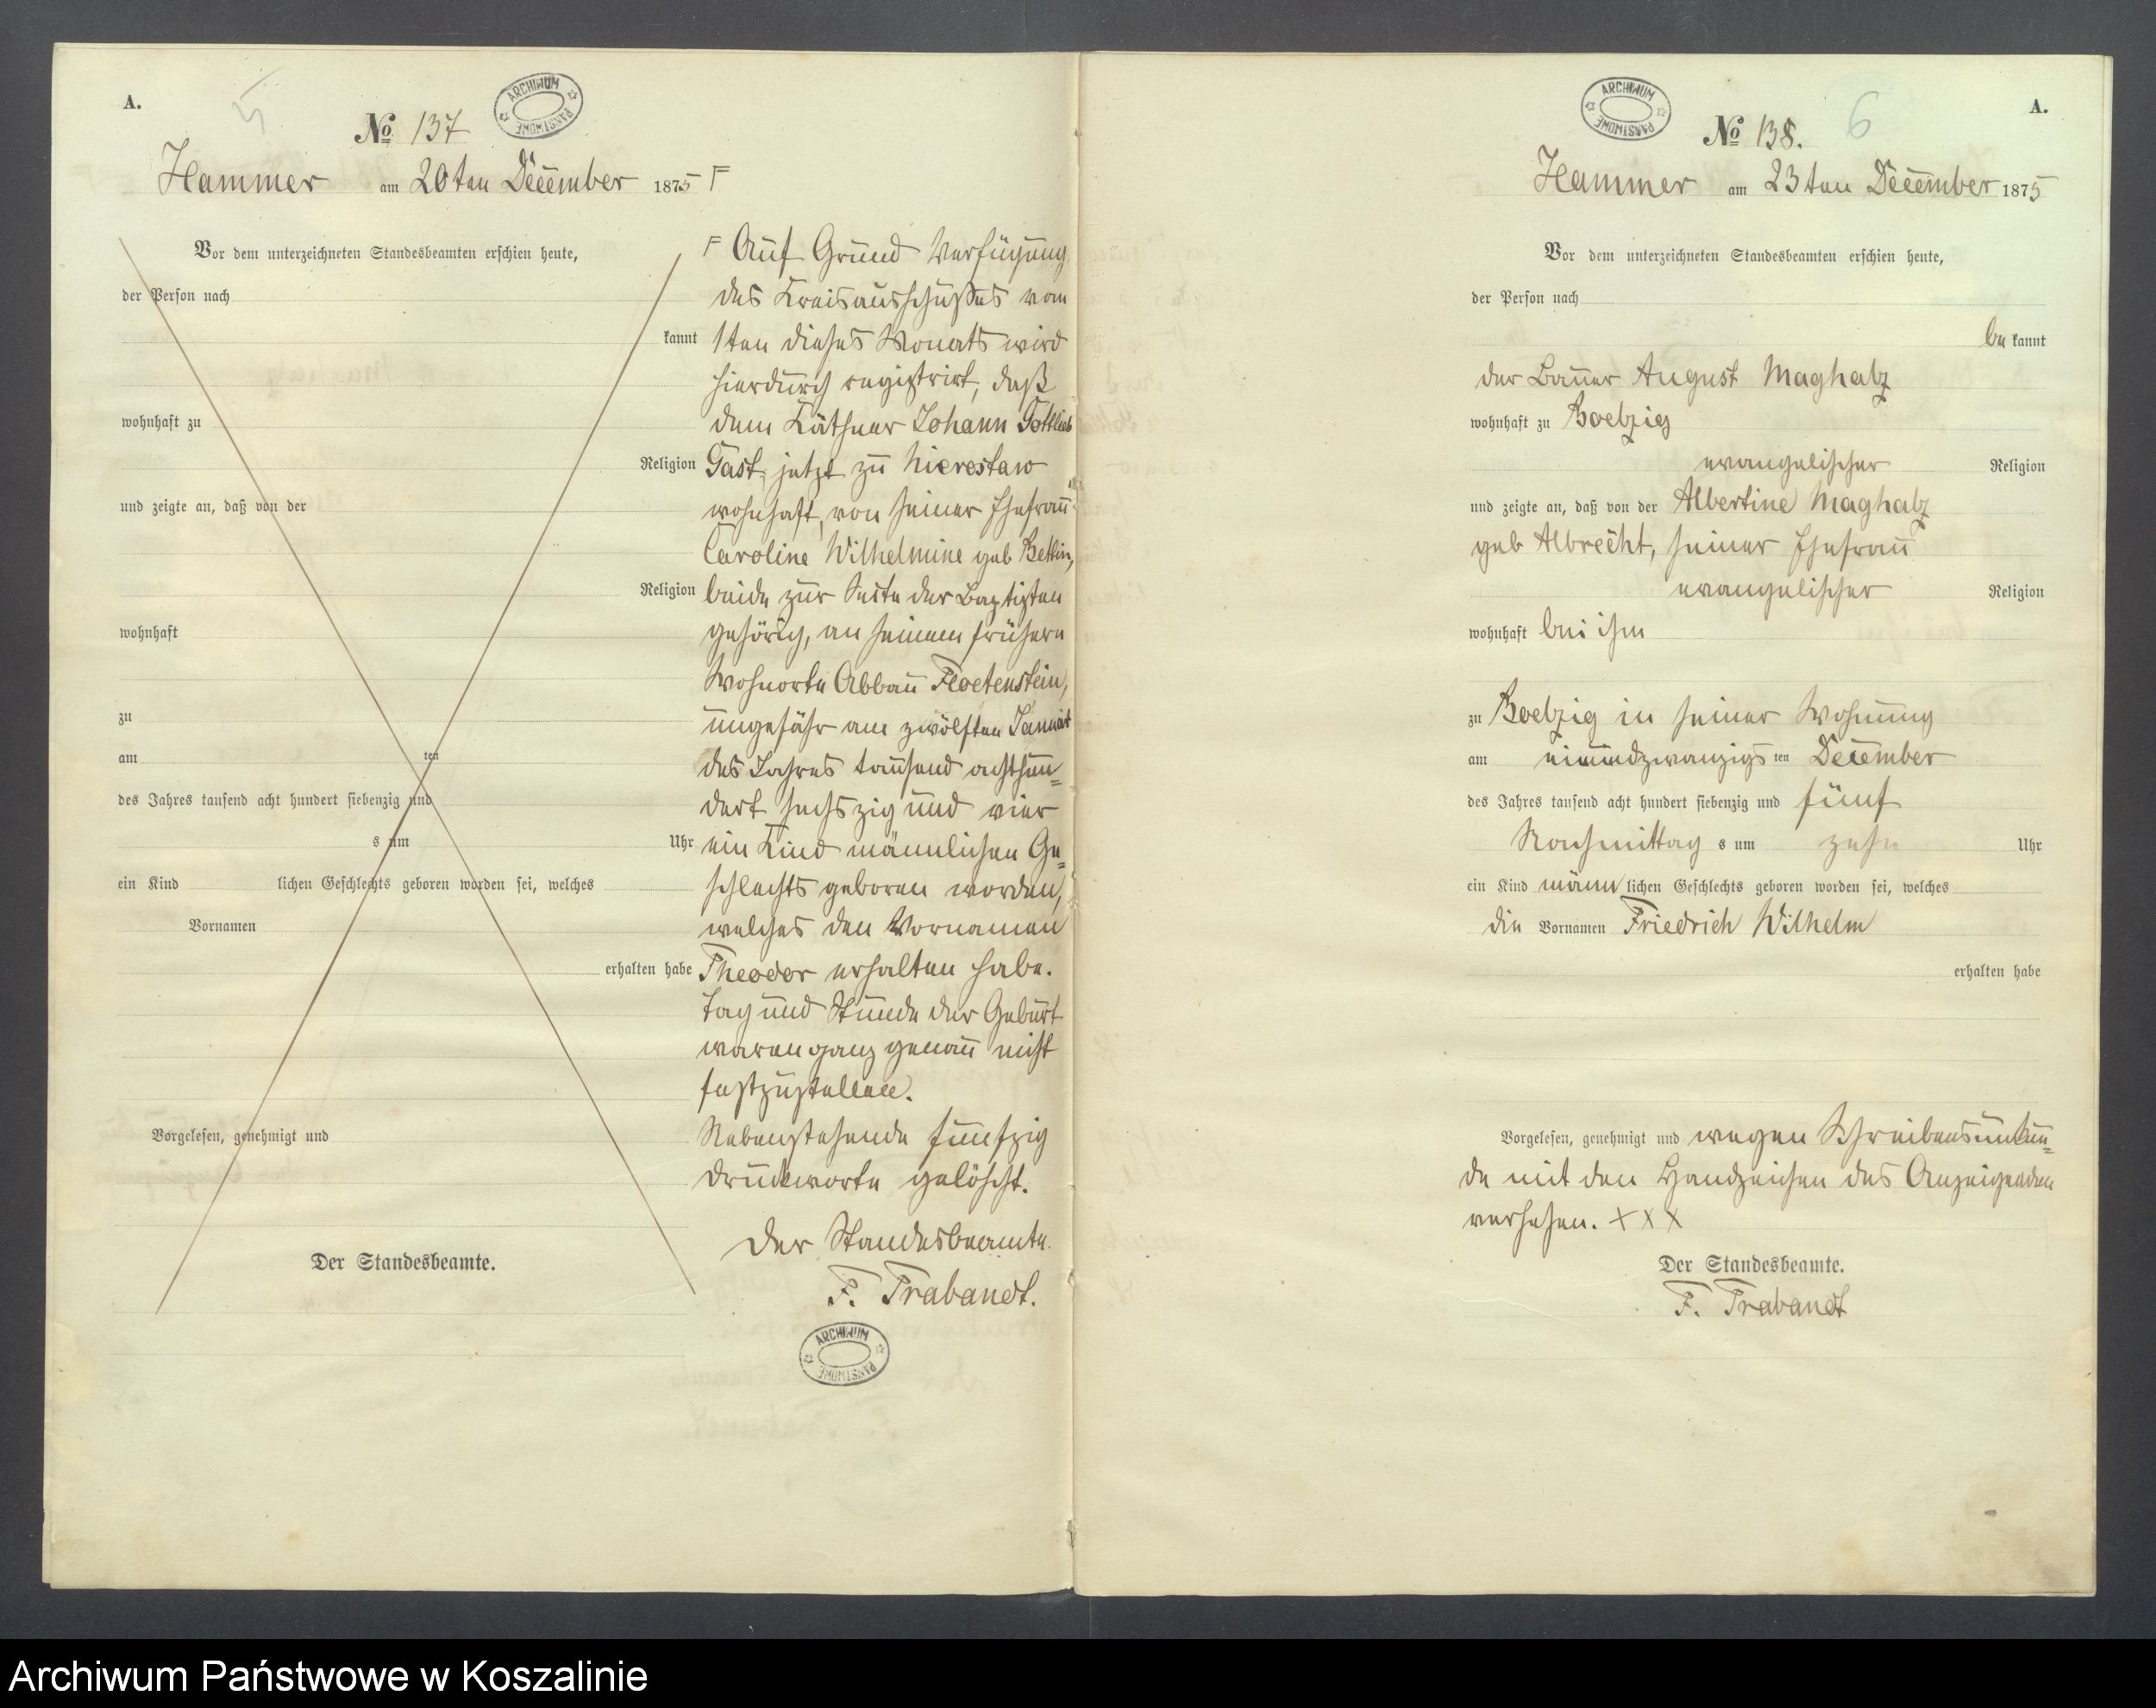 A.
5
ARCHIWUM PAŃSTWOWE
№ 137
Hammer am 20ten December 1875 F
Vor dem unterzeichneten Standesbeamten erschien heute,
der Person nach
kannt
wohnhaft zu
Religion
und zeigte an, daß von der
Religion
wohnhaft
zu
am ten
des Jahres tausend acht hundert siebenzig und
s um Uhr
ein Kind lichen Geschlechts geboren worden sei, welches
Vornamen
erhalten habe
Vorgelesen, genehmigt und
Der Standesbeamte.
F Auf Grund Verfügung
des Kreisausschußes vom
1ten dieses Monats wird
hierdurch registrirt, daß
dem Käthner Johann Gottlieb
Gast, jetzt zu Nierostaw
wohnhaft, von seiner Ehefrau
Caroline Wilhelmine geb Bettin,
beide zur Secte der Baptisten
gehörig, an seinem frühern
Wohnorte Abbau Floetenstein,
ungefähr am zwölften Januar
des Jahres tausend achthun=
dert sechszig und vier
ein Kind männlichen Ge=
schlechts geboren worden,
welches den Vornamen
Theodor erhalten habe.
Tag und Stunde der Geburt
waren ganz genau nicht
festzustellen.
Nebenstehende fünfzig
Druckworte gelöscht.
Der Standesbeamte.
F. Trabandt.
ARCHIWUM PAŃSTWOWE
ARCHIWUM PAŃSTWOWE
6
A.
№ 138.
Hammer am 23ten December 1875
Vor dem unterzeichneten Standesbeamten erschien heute,
der Person nach
be kannt
der Bauer August Maghalz
wohnhaft zu Boelzig
evangelischer Religion
und zeigte an, daß von der Albertine Maghalz
geb Albrecht, seiner Ehefrau
evangelischer Religion
wohnhaft bei ihm
zu Boelzig in seiner Wohnung
am einundzwanzigs ten December
des Jahres tausend acht hundert siebenzig und fünf
Nachmittag s um zehn Uhr
ein Kind männ lichen Geschlechts geboren worden sei, welches
die Vornamen Friedrich Wilhelm
erhalten habe
Vorgelesen, genehmigt und wegen Schreibensunkun=
de mit den Handzeichen des Anzeigenden
versehen. + x x
Der Standesbeamte.
F. Trabandt
Archiwum Państwowe w Koszalinie